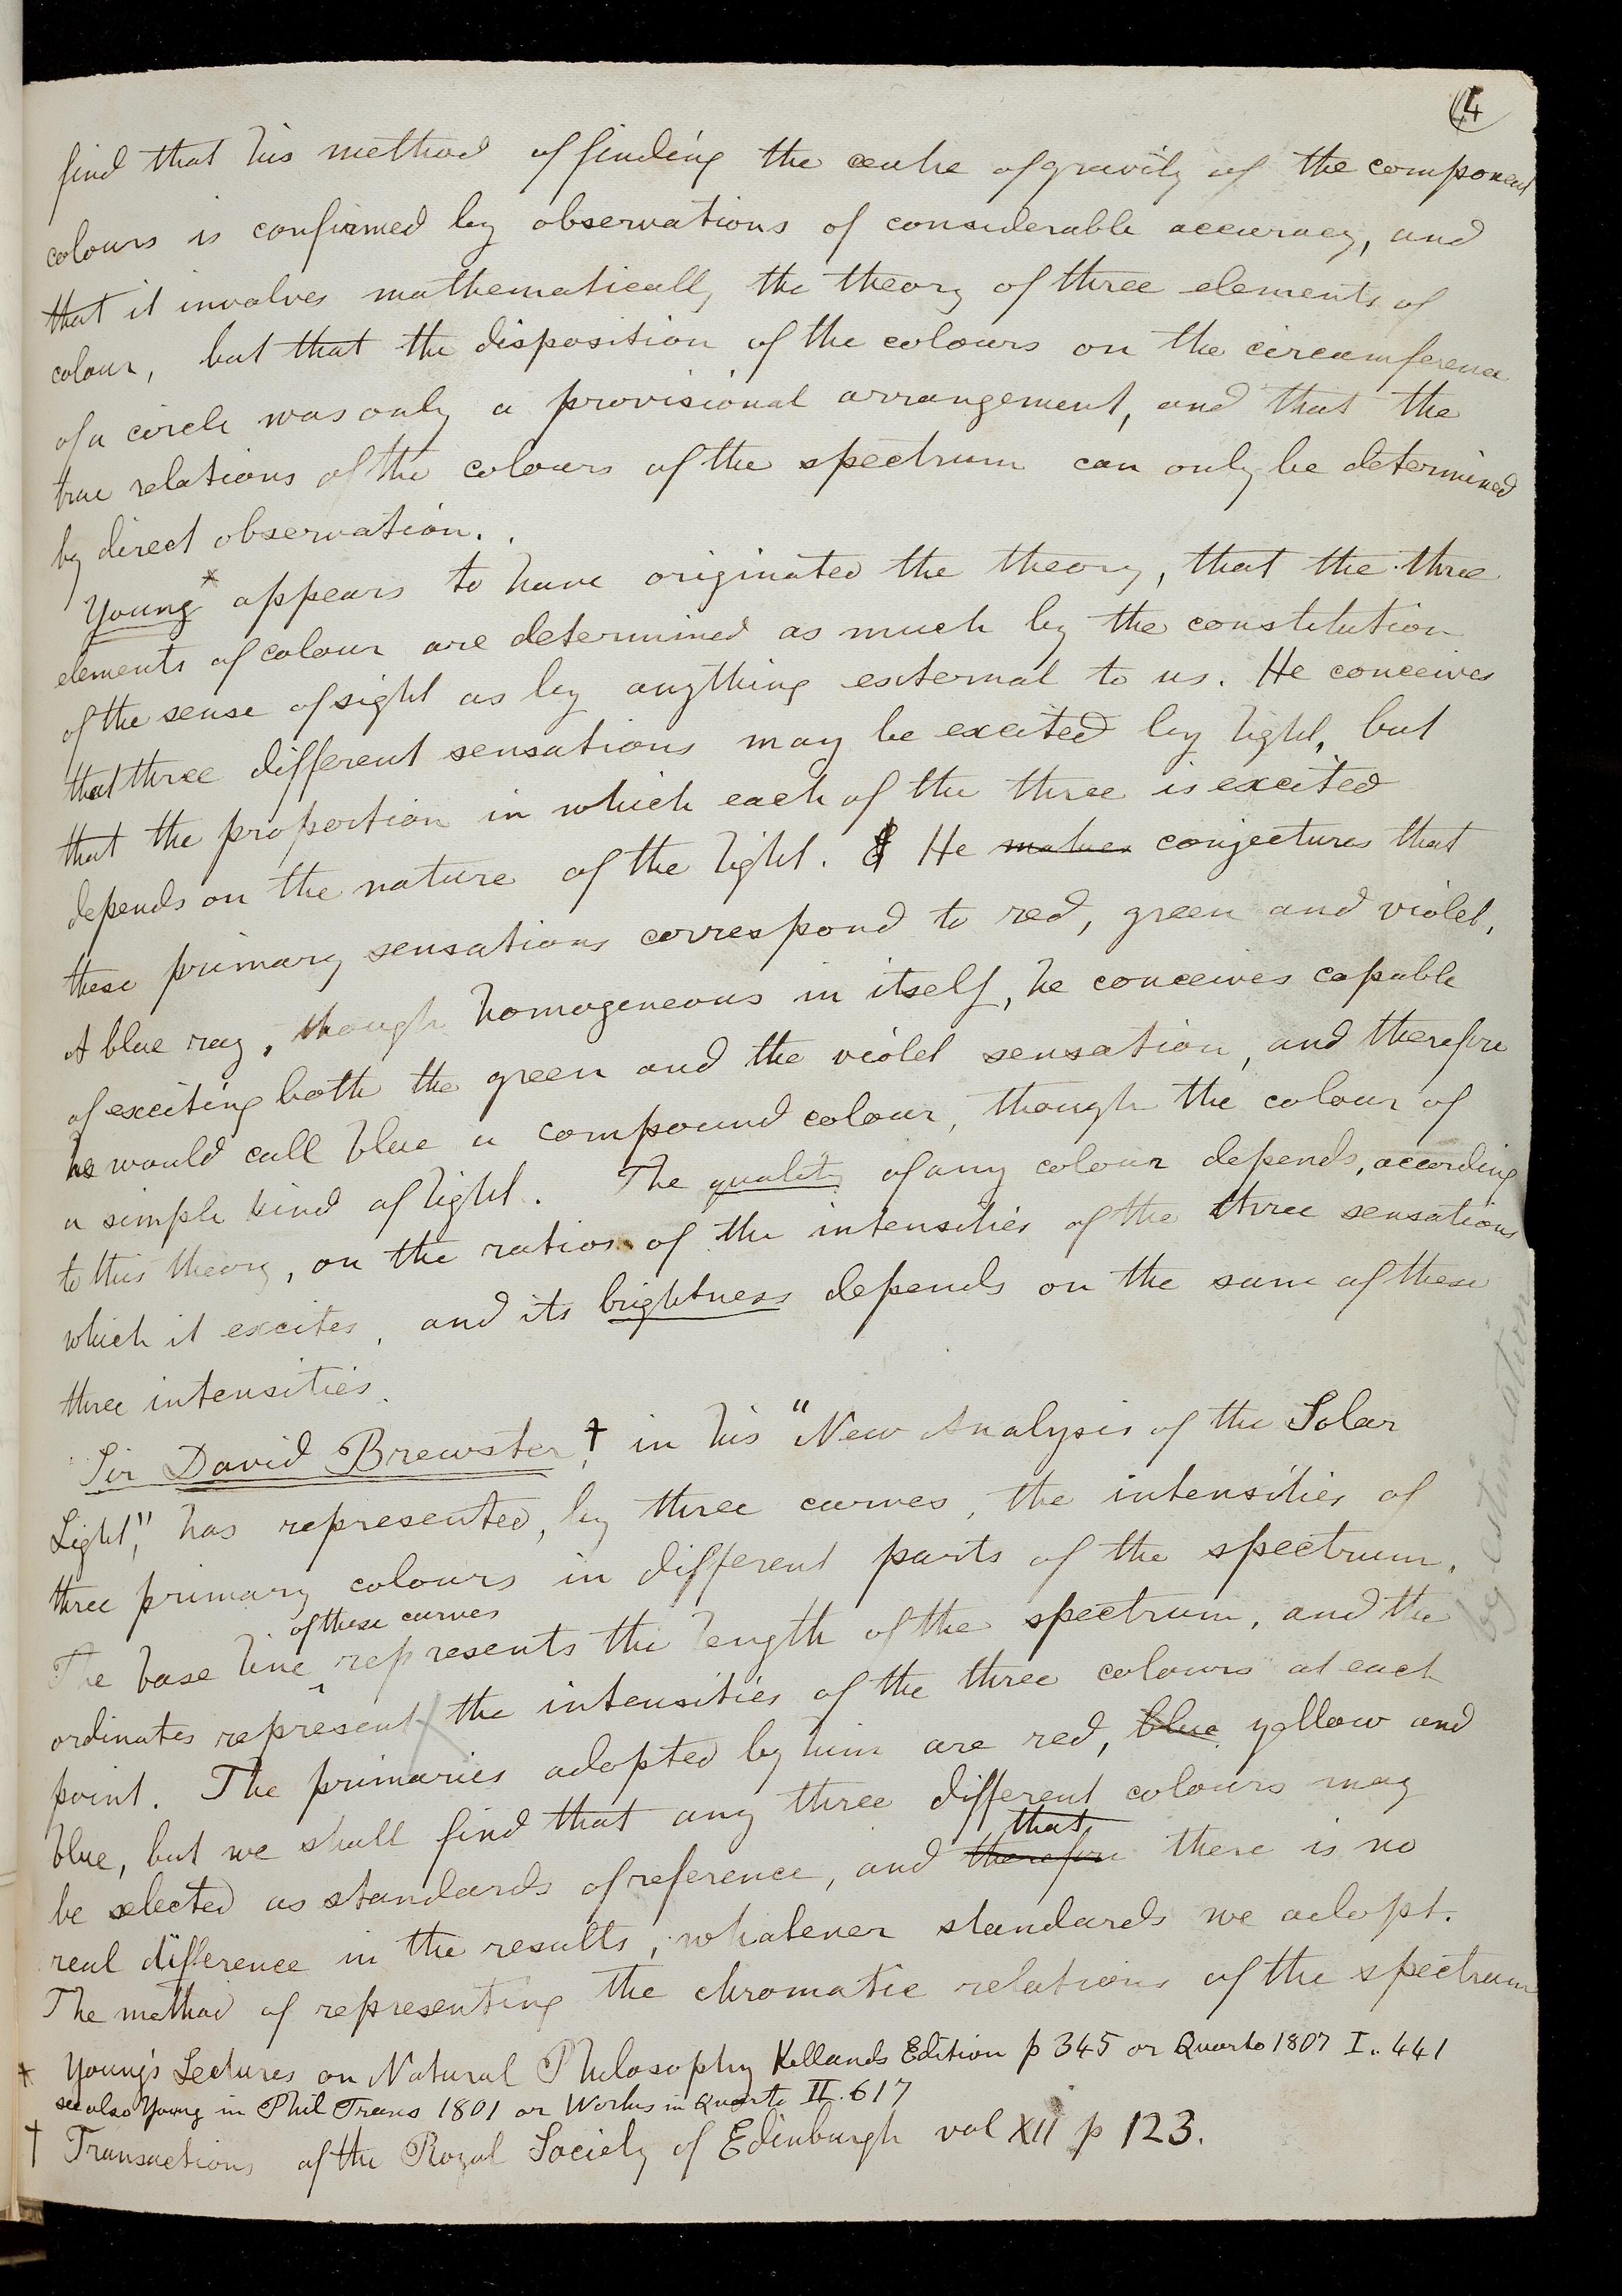 4
find that his method of finding the centre of gravity of the component
colours is confirmed by observations of considerable accuracy, and
that it involves mathematically the theory of three elements of
colour, but that the disposition of the colours on the circumference
of a circle was only a provisional arrangement, and that the
true relations of the colours of the spectrum can only be determined
by direct observation.
Young* appears to have originated the theory, that the three
elements of colour are determined as much by the constitution
of the sense of sight as by anything external to us. He conceives
that three different sensations may be excited by light, but
that the proportion in which each of the three is excited
depends on the nature of the light. He makes conjectures that
these primary sensations correspond to red, green and violet.
A blue ray, though homogeneous in itself, he conceives capable
of exciting both the green and the violet sensation, and therefore
he would call blue a compound colour, though the colour of
a simple kind of light. The quality of any colour depends, according
to this theory, on the ratios of the intensities of the three sensations
which it excites, and its brightness depends on the sum of these
three intensities.
Sir David Brewster,† in his "New Analysis of the Solar
Light", has represented, by three curves, the intensities of
three primary colours in different parts of the spectrum.
of these curves
The base line ^ represents the length of the spectrum, and the
ordinates represent the intensities of the three colours at each
by estimation
point. The primaries adopted by him are red, blue yellow and
blue, but we shall find that any three different colours may
that
be selected as standards of reference, and therefore there is no
real difference in the results, whatever standards we adopt.
The method of representing the chromatic relations of the spectrum
* Young's Lectures on Natural Philosophy Kellands Edition p 345 or Quarto 1807 I.. 441
see also Young in Phil Trans 1801 or Works in Quarto II. 617
† Transactions of the Royal Society of Edinburgh vol XII p 123.